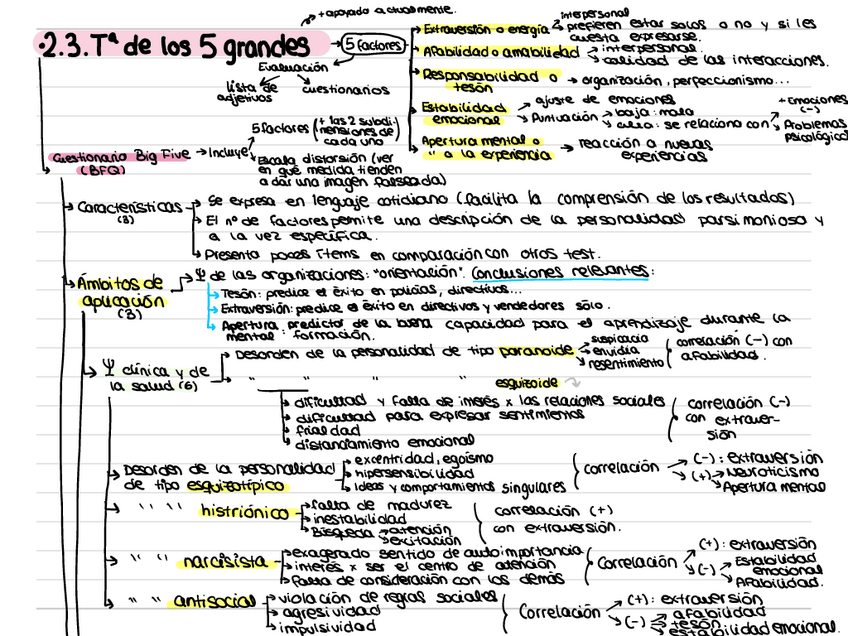 + apoyada actualmente.
·2.3. Tª de los 5 grandes → 5 factores
Evaluación
lista de adjetivos
cuestionarios
Extraversión o energía → interpersonal
prefieren estar solos o no y si les
cuesta expresarse.
Afabilidad o amabilidad → interpersonal.
calidad de las interacciones.
Responsabilidad o
tesón → organización, perfeccionismo...
Estabilidad
emocional → ajuste de emociones
Puntuación → baja: malo
alta: se relaciona con → + Emociones (-)
Problemas
psicológicos
Apertura mental o
" a la experiencia → reacción a nuevas
experiencias
Cuestionario Big Five
(BFQ) → Incluye:
5 factores (+ las 2 subdi-
mensiones de
cada uno)
Escala distorsión (ver
en qué medida tienden
a dar una imagen falseada)
Características
(3)
Se expresa en lenguaje cotidiano (facilita la comprensión de los resultados)
El nº de factores permite una descripción de la personalidad parsimoniosa y
a la vez específica.
Presenta pocos ítems en comparación con otros test.
Ámbitos de
aplicación
(3)
Ψ de las organizaciones: "orientación". Conclusiones relevantes:
Tesón: predice el éxito en policías, directivos...
Extraversión: predice el éxito en directivos y vendedores sólo.
Apertura mental: predictor de la buena capacidad para el aprendizaje durante la
formación.
Ψ clínica y de
la salud (6)
Desorden de la personalidad de tipo paranoide → suspicacia
envidia
resentimiento
correlación (-) con
afabilidad.
" " " " esquizoide
dificultad y falta de interés x las relaciones sociales
dificultad para expresar sentimientos
frialdad
distanciamiento emocional
correlación (-)
con extraver-
sión
Desorden de la personalidad
de tipo esquizotípico
excentridad, egoísmo
hipersensibilidad
Ideas y comportamientos singulares
correlación → (-): extraversión
(+) → Neuroticismo
Apertura mental
" " " histriónico
falta de madurez
inestabilidad
Búsqueda → atención
excitación
correlación (+)
con extraversión.
" " narcisista
exagerado sentido de autoimportancia
interés x ser el centro de atención
falta de consideración con los demás
Correlación → (+): extraversión
(-) → Estabilidad
emocional
Afabilidad.
" " antisocial
violación de reglas sociales
agresividad
impulsividad
Correlación → (+): extraversión
(-) → afabilidad
tesón
estabilidad emocional.